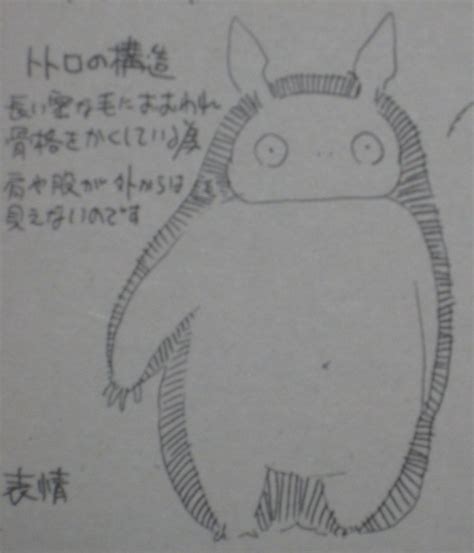 トトロの構造
長い密な毛におおわれ
骨格をかくしている為
肩や股が外からは
見えないのです
表情